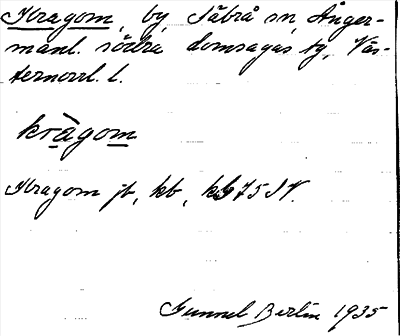 Kragom, by, Säbrå sn, Ånger-
manl. södra domsagas tg, Väs-
ternorrl. l.
kràgom
Kragom jb, kb, kbl 75 NV.
Gunnel Bertin 1935